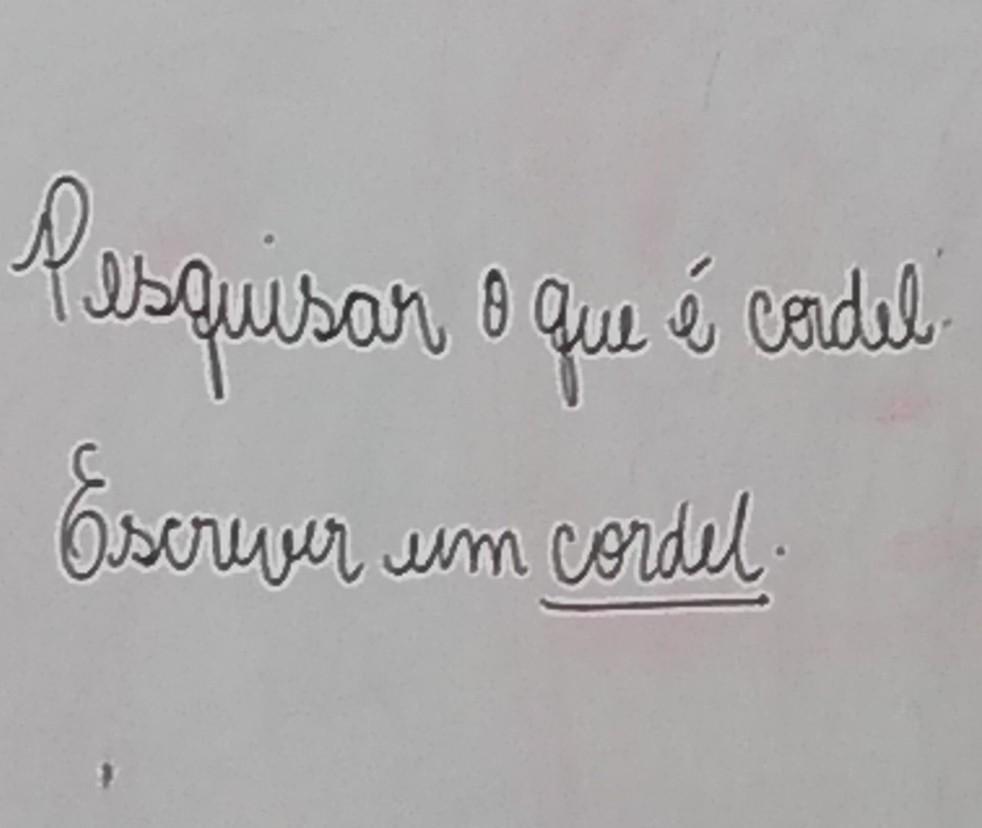 Pesquisar o que é cordel.
Escrever um cordel.